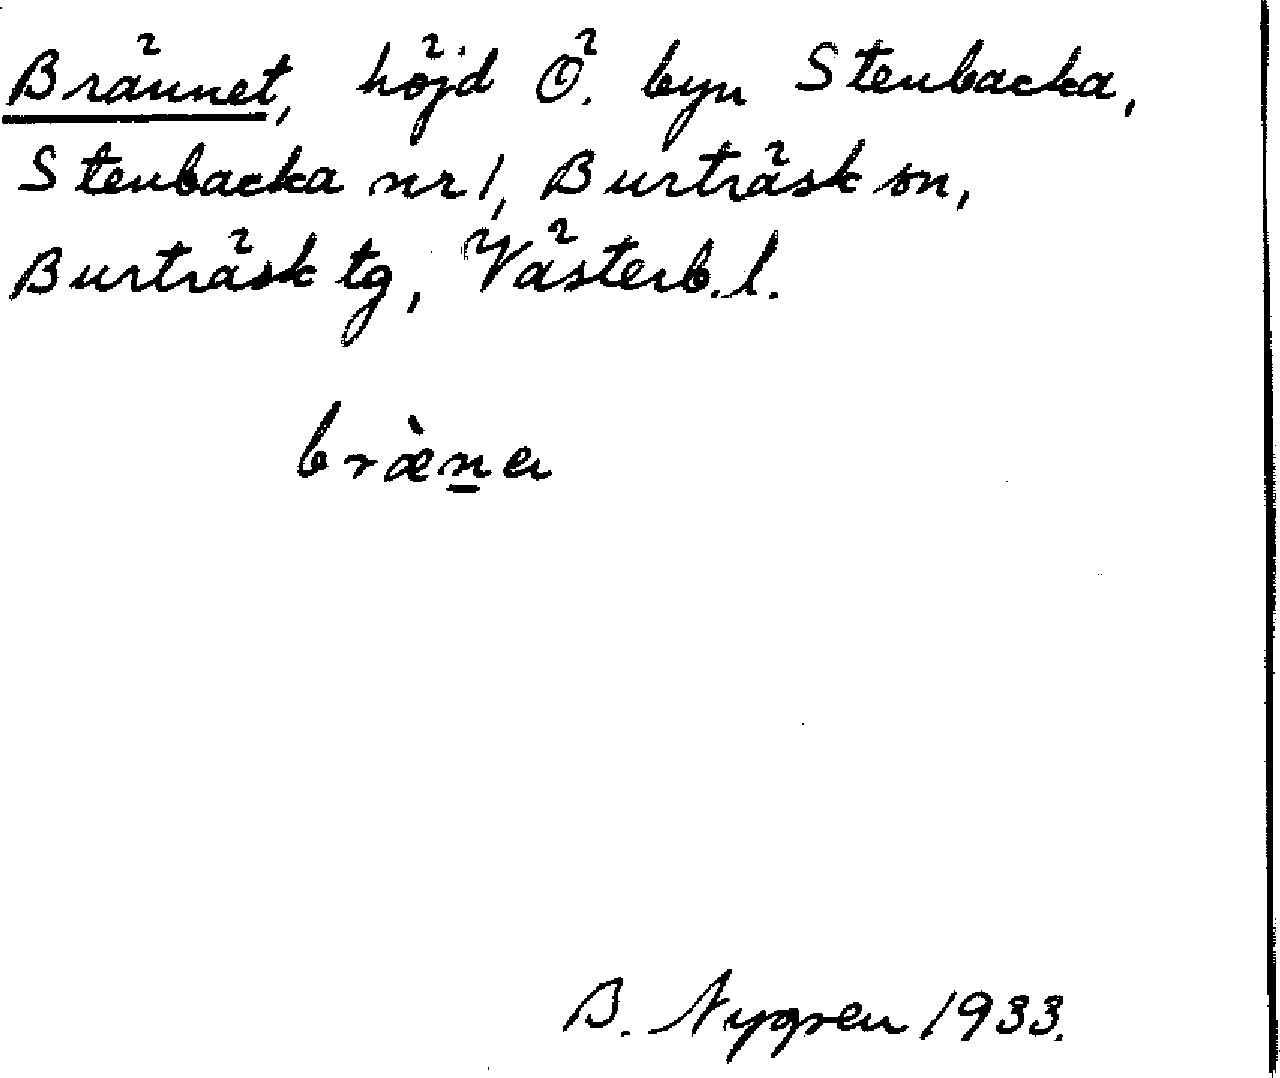 Brännet, höjd Ö. byn Stenbacka,
Stenbacka nr 1, Burträsk sn,
Burträsk tg, Västerb. l.
bræ̀n̲a
B. Nygren 1933.